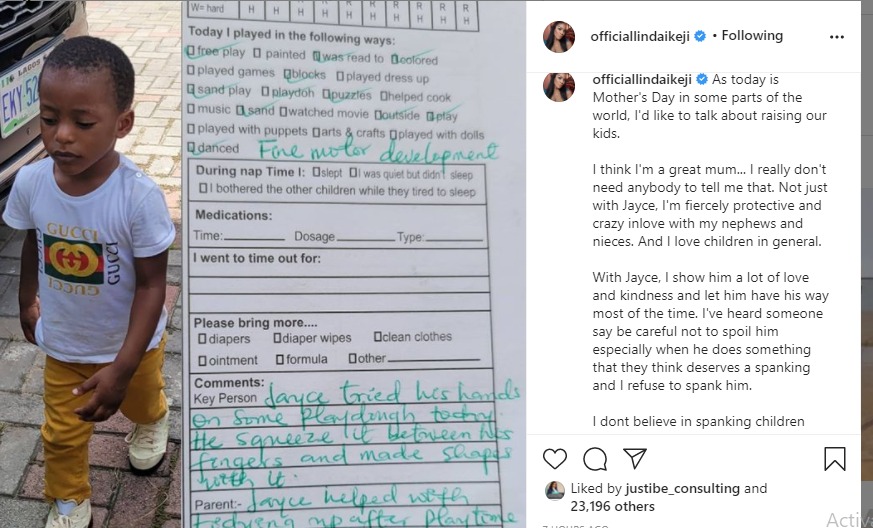 LAGOS
EKY-52
GUCCI
GUCCI
GUCCI
GUCCI
W= hard H H H H R H R H R H R H
Today I played in the following ways:
☐free play ☐ painted ☐was read to ☐colored
☐played games ☐blocks ☐played dress up
☐sand play ☐playdoh ☐puzzles ☐helped cook
☐music ☐sand ☐watched movie ☐outside ☐play
☐played with puppets ☐arts & crafts ☐played with dolls
☐danced Fine motor development
During nap Time I: ☐slept ☐I was quiet but didn't sleep
☐I bothered the other children while they tired to sleep
Medications:
Time: Dosage Type:
I went to time out for:
Please bring more....
☐diapers ☐diaper wipes ☐clean clothes
☐ointment ☐formula ☐other
Comments:
Key Person Jayce tried his hands
on some playdough today.
He squeeze it between his
fingers and made shapes
with it.
Parent:- Jayce helped with
tidying up after playtime
officiallindaikeji • Following
officiallindaikeji As today is
Mother's Day in some parts of the
world, I'd like to talk about raising our
kids.
I think I'm a great mum... I really don't
need anybody to tell me that. Not just
with Jayce, I'm fiercely protective and
crazy inlove with my nephews and
nieces. And I love children in general.
With Jayce, I show him a lot of love
and kindness and let him have his way
most of the time. I've heard someone
say be careful not to spoil him
especially when he does something
that they think deserves a spanking
and I refuse to spank him.
I dont believe in spanking children
Liked by justibe_consulting and
23,196 others
7 HOURS AGO
Activ